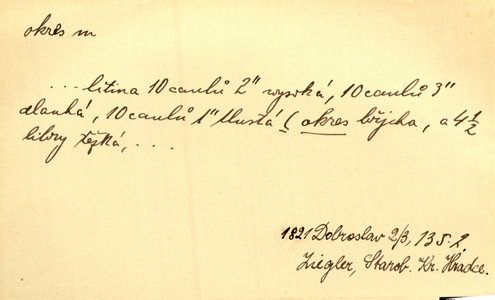 okres m
...litina 10 caulů 2" vysoká, 10 caulů 3"
dlouhá, 10 caulů 1" tlustá (okres břicha, a 4½
libry těžká, ...
1821 Dobroslav 2/3, 135.2
Ziegler, Starob. Kr. Hradce.